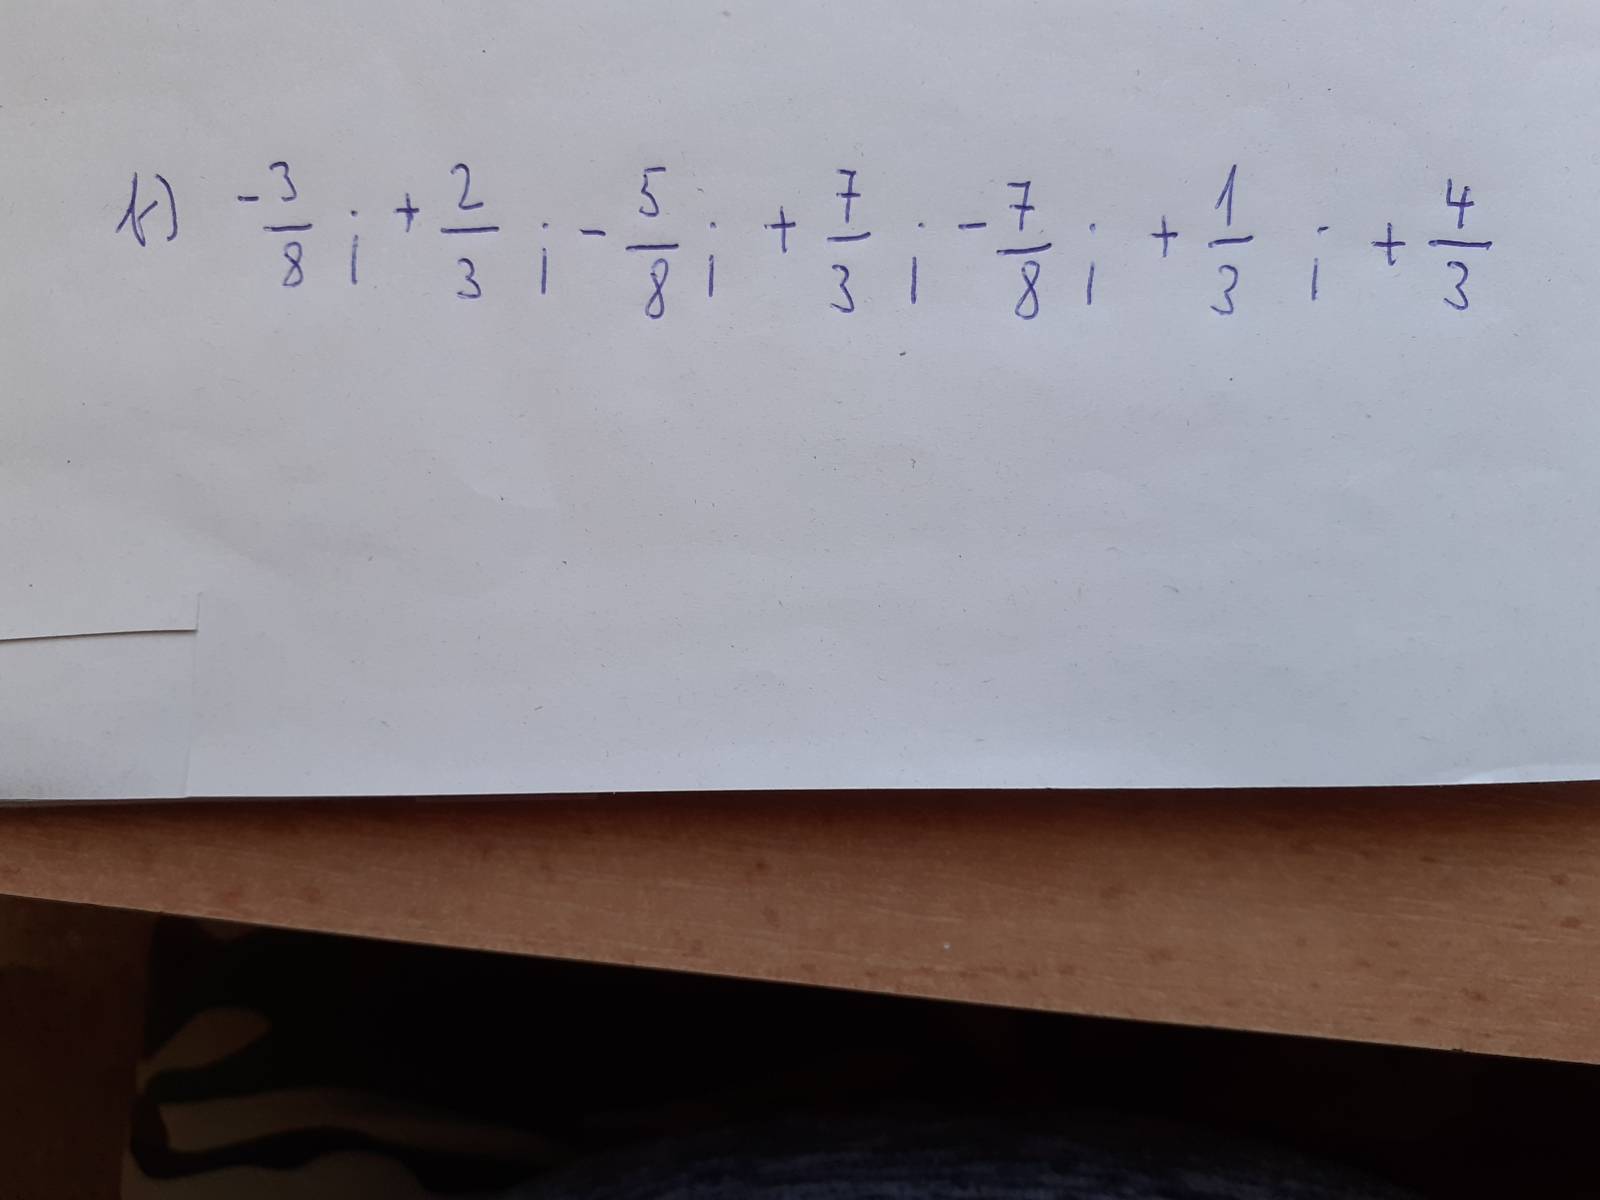 b) -3/8 ; + 2/3 ; - 5/8 ; + 7/3 ; - 7/8 ; + 1/3 ; + 4/3